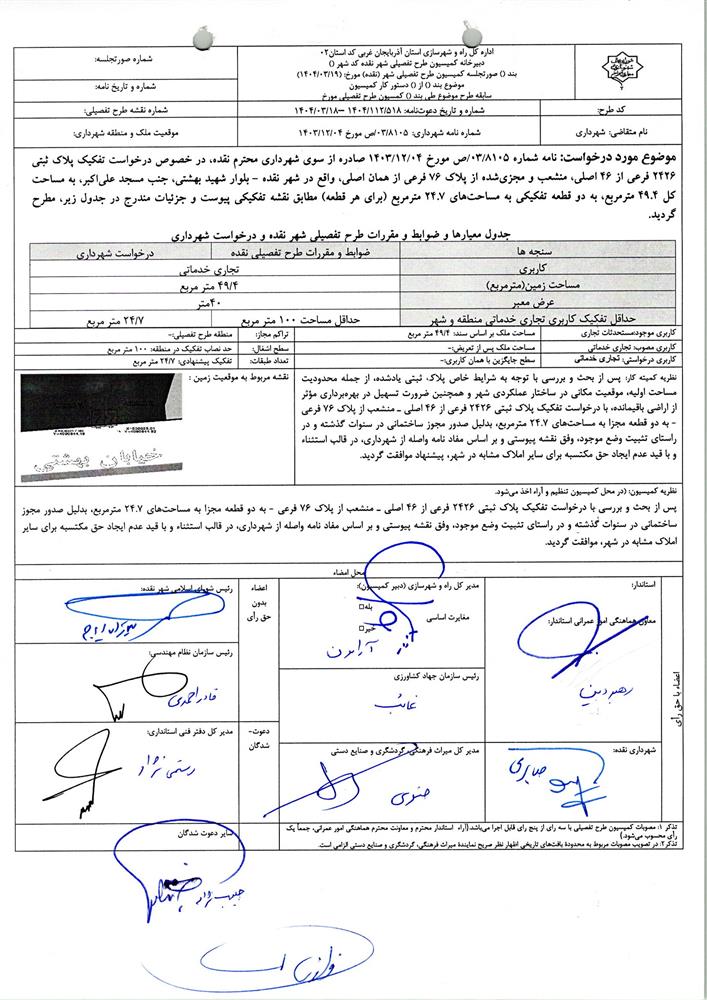 اداره کل راه و شهرسازی استان آذربایجان غربی کد استان۰۲
دبیرخانه کمیسیون طرح تفصیلی شهر نقده کد شهر ()
بند () صورتجلسه کمیسیون طرح تفصیلی شهر (نقده) مورخ: (۱۴۰۴/۰۳/۱۹)
موضوع بند () از () دستور کار کمیسیون
سابقه طرح موضوع طی بند () کمسیون طرح تفصیلی مورخ
شماره صورتجلسه:
شماره و تاریخ نامه:
کد طرح:
شماره و تاریخ دعوت‌نامه: ۱۴۰۴/۱۱۲/۵۱۸ –۱۴۰۴/۰۳/۱۸
شماره نقشه طرح تفصیلی:
نام متقاضی: شهرداری
شماره نامه شهرداری: ۰۳/۸۱۰۵/ص مورخ ۱۴۰۳/۱۲/۰۴
موقعیت ملک و منطقه شهرداری:
موضوع مورد درخواست: نامه شماره ۰۳/۸۱۰۵/ص مورخ ۱۴۰۳/۱۲/۰۴ صادره از سوی شهرداری محترم نقده، در خصوص درخواست تفکیک پلاک ثبتی
۲۴۲۶ فرعی از ۴۶ اصلی، منشعب و مجزی‌شده از پلاک ۷۶ فرعی از همان اصلی، واقع در شهر نقده – بلوار شهید بهشتی، جنب مسجد علی‌اکبر، به مساحت
کل ۴۹.۴ مترمربع، به دو قطعه تفکیکی به مساحت‌های ۲۴.۷ مترمربع (برای هر قطعه) مطابق نقشه تفکیکی پیوست و جزئیات مندرج در جدول زیر، مطرح
گردید.
جدول معیارها و ضوابط و مقررات طرح تفصیلی شهر نقده و درخواست شهرداری
سنجه ها
ضوابط و مقررات طرح تفصیلی نقده
درخواست شهرداری
کاربری
تجاری خدماتی
مساحت زمین(مترمربع)
۴۹/۴ متر مربع
عرض معبر
۴۰متر
حداقل تفکیک کاربری تجاری خدماتی منطقه و شهر
حداقل مساحت ۱۰۰ متر مربع
۲۴/۷ متر مربع
کاربری موجود:مستحدثات تجاری
مساحت ملک بر اساس سند: ۴۹/۴ متر مربع
تراکم مجاز:
منطقه طرح تفصیلی:-
کاربری مصوب: تجاری خدماتی
مساحت ملک پس از تعریض:-
سطح اشغال:
حد نصاب تفکیک در منطقه: ۱۰۰ متر مربع
کاربری درخواستی: تجاری خدماتی
سطح جایگزین با همان کاربری:-
تعداد طبقات:
تفکیک پیشنهادی: ۲۴/۷ متر مربع
نظریه کمیته کار: پس از بحث و بررسی با توجه به شرایط خاص پلاک ثبتی یادشده، از جمله محدودیت
مساحت اولیه، موقعیت مکانی در ساختار عملکردی شهر و همچنین ضرورت تسهیل در بهره‌برداری مؤثر
از اراضی باقیمانده، با درخواست تفکیک پلاک ثبتی ۲۴۲۶ فرعی از ۴۶ اصلی ـ منشعب از پلاک ۷۶ فرعی
- به دو قطعه مجزا به مساحت‌های ۲۴.۷ مترمربع، بدلیل صدور مجوز ساختمانی در سنوات گذشته و در
راستای تثبیت وضع موجود، وفق نقشه پیوستی و بر اساس مفاد نامه واصله از شهرداری، در قالب استثناء
و با قید عدم ایجاد حق مکتسبه برای سایر املاک مشابه در شهر، پیشنهاد موافقت گردید.
نقشه مربوط به موقعیت زمین :
خیابان بهشتی
نظریه کمیسیون: (در محل کمیسیون تنظیم و آراء اخذ می‌شود.
پس از بحث و بررسی با درخواست تفکیک پلاک ثبتی ۲۴۲۶ فرعی از ۴۶ اصلی ـ منشعب از پلاک ۷۶ فرعی - به دو قطعه مجزا به مساحت‌های ۲۴.۷ مترمربع، بدلیل صدور مجوز
ساختمانی در سنوات گذشته و در راستای تثبیت وضع موجود، وفق نقشه پیوستی و بر اساس مفاد نامه واصله از شهرداری، در قالب استثناء و با قید عدم ایجاد حق مکتسبه برای سایر
املاک مشابه در شهر، موافقت گردید.
محل امضاء
اعضاء با حق رأی
استاندار:
معاون هماهنگی امور عمرانی استاندار:
مدیر کل راه و شهرسازی (دبیر کمیسیون):
مغایرت اساسی
بله□
خیر□
اعضاء
بدون
حق رأی
رئیس شورای اسلامی شهر نقده:
رئیس سازمان نظام مهندسی:
قادر احمدی
رئیس سازمان جهاد کشاورزی
غائب
شهرداری نقده:
صابری
مدیر کل میراث فرهنگی، گردشگری و صنایع دستی
دعوت-
شدگان
مدیر کل دفتر فنی استانداری:
رستمی نژاد
تذکر ۱: مصوبات کمیسیون طرح تفصیلی با سه رای از پنج رای قابل اجرا می‌باشد.(آراء استاندار محترم و معاونت محترم هماهنگی امور عمرانی، جمعاً یک
رأی محسوب می‌شود.)
تذکر۲: در تصویب مصوبات مربوط به محدودهٔ بافت‌های تاریخی اظهار نظر صریح نمایندهٔ میراث فرهنگی، گردشگری و صنایع دستی الزامی است.
سایر دعوت شدگان